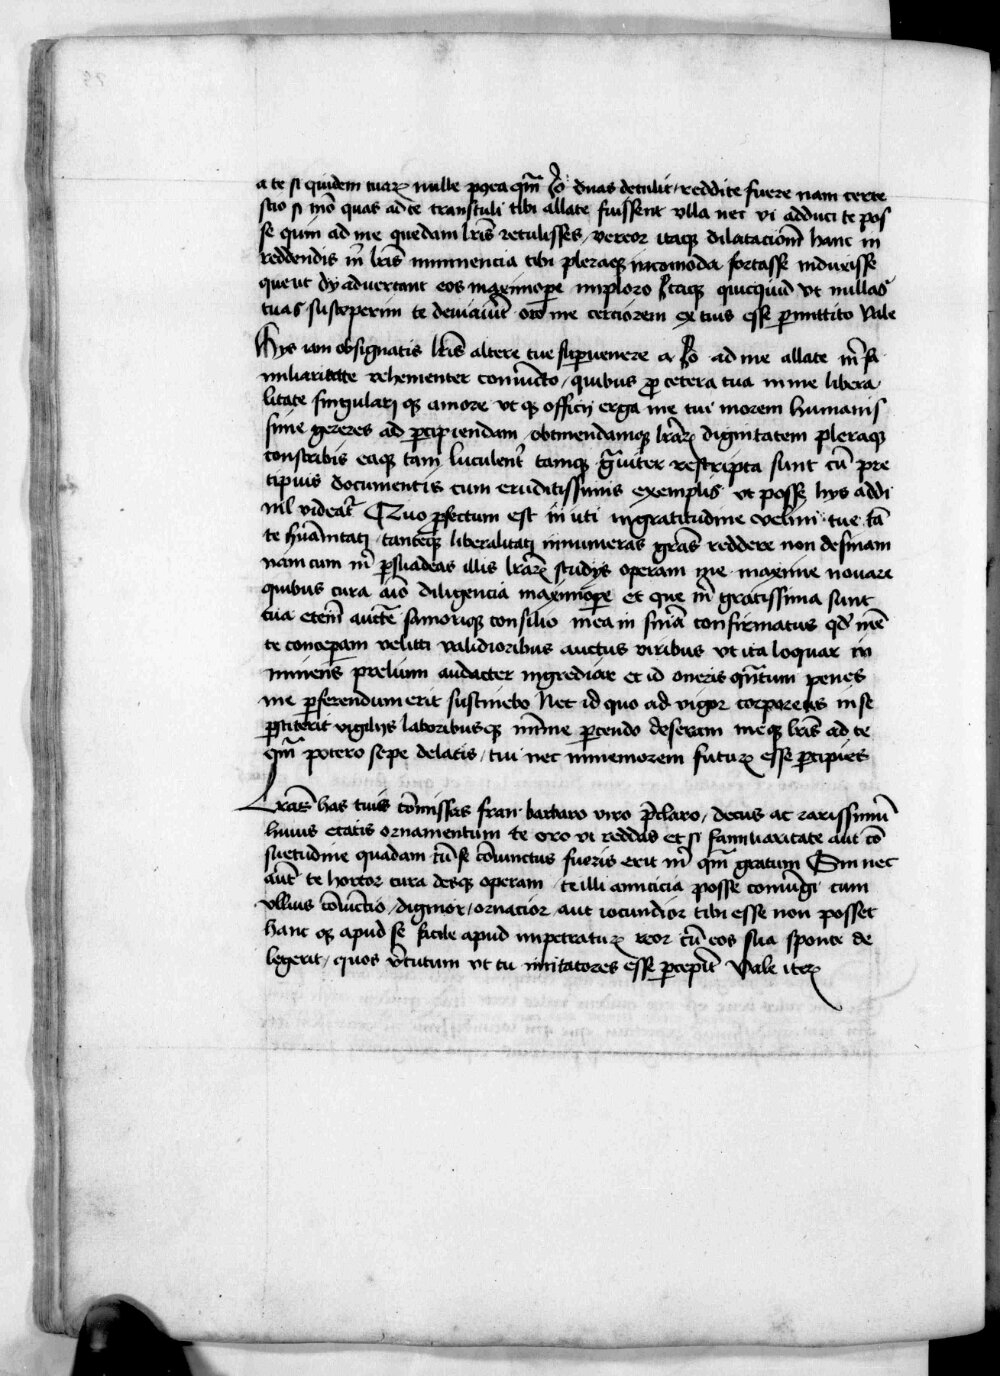 a te si quidem tuarꝝ nulle p9ea qm̄ Io duas detulit / reddite fuere nam certe
scio si mō quas ad te transtuli tibi allate fuissent vlla nec vi adduci te pos
se quin ad me quedam lrīs retulisses / vereor itaqꝫ dilatacionē hanc in
reddendis m̄ lrīs imminencia tibi pleraqꝫ incomoda fortasse induxisse
que ut dij aduertant eos maximope imploro Itaqꝫ quicquid vt nullas
tuas susceperim te deuiauit oro me cerciorem ex tuis esse pmittito Vale
Hys iam obsignatis lrīs altere tue supuenere a Io ad me allate m̄ fa
miliaritate vehementer coniūcto / quibus p cetera tua in me libera
litate singulari qꝫ amore vt qꝫ officij erga me tui morem humanis
sime gereres ad pcipiendam obtinendamqꝫ lrarꝝ dignitatem pleraqꝫ
conscribis eaqꝫ tam luculent tamqꝫ grauiter rescripta sunt cū pre
cipuis documentis cum eruditissimis exemplis vt posse hys addi
nil videat᷑ Quo pfectum est in uti ingratitudine velim tue tā
te hūanitati / tanteqꝫ liberalitati innumeras grās reddere non desinam
nam cum m̄ psuadeas illis lrarꝝ studijs operam me maxime nouare
quibus cura aīo diligencia maximope et que m̄ gratissima sunt
tua etem̄ aucte famoriqꝫ consilio mea in snīa confirmatus qd̄ mē
te concepam velitti validioribus auctus viribus vt ita loquar in
iniens prelium audacter ingrediar et id oneris qn̄tum penes
me pferendum erit sustinebo Nec id quo ad vigor corporeus in se
pstiterit vigilijs laboribusqꝫ mīme pcendo deseram meqꝫ lrīs ad te
qm̄ potero sepe delatis / tui nec inmemorem futurꝝ esse pcipies
Lrās has tuis cōmissas fran barbaro viro pclaro / decus ac rarissimū
huius etatis ornamentum te oro vi reddas et si familiaritate aut cō
suetudine quadam cū se cōiunctus fueris erit m̄ qm̄ gratum Sin nec
aut te hortor cura desqꝫ operam te illi amicicia posse coniūgi cum
vllius cōiūctio / dignior / ornacior aut iocundior tibi esse non posset
hanc qꝫ apud se facile apud impetraturꝝ reor cū eos sua sponte de
legerit / quos vtutum vt tu imitatores esse pcepit Vale iterꝝ